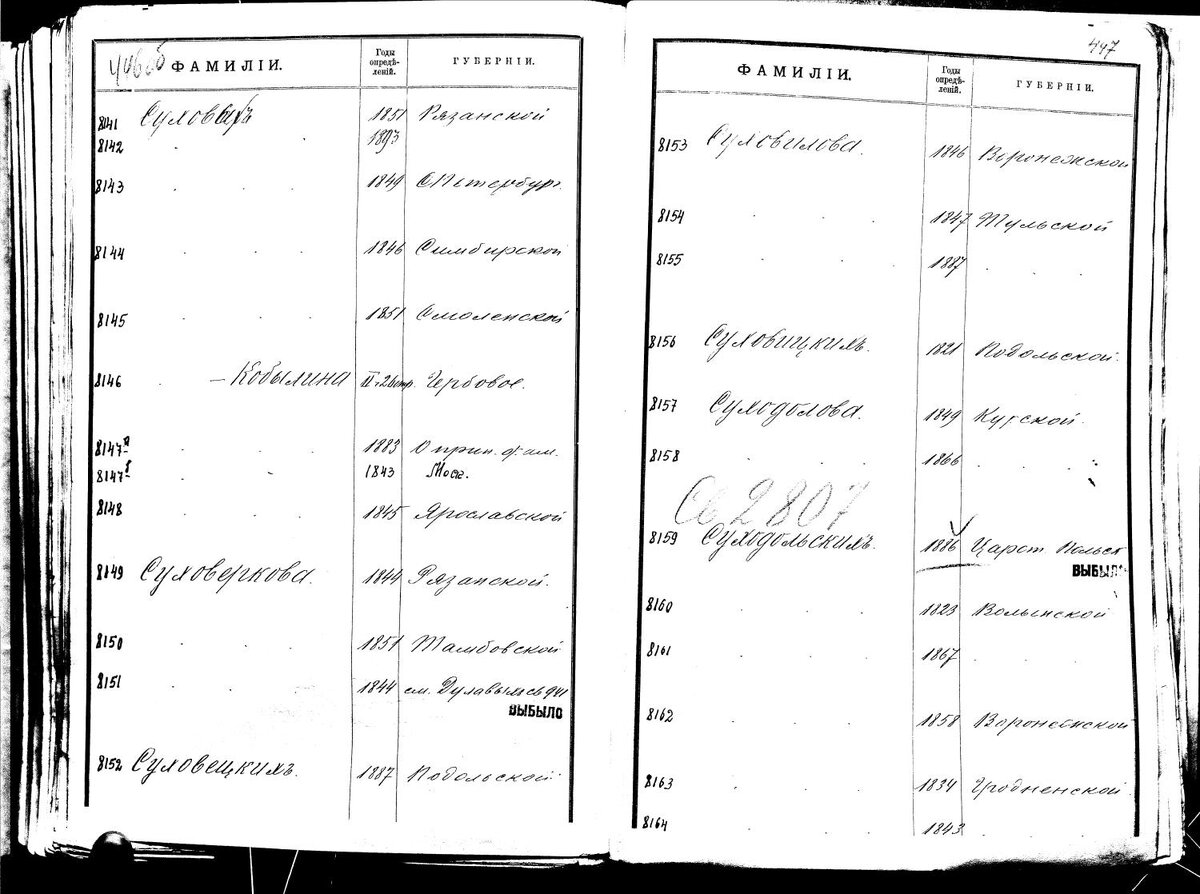 446об
ФАМИЛІИ. Годы опредѣленій. ГУБЕРНІИ.
8141 Суховыхъ 1851 Рязанской
8142 . . 1893
8143 . . . 1849 СПетербург.
8144 . . . 1846 Симбирской
8145 . . . 1851 Смоленской
8146 . — Кобылина Гербовое.
8147а . . 1883 О прин. фам.
8147б . . 1843 Моск.
8148 . . . 1845 Ярославской
8149 Суховеркова. 1844 Рязанской.
8150 . . . 1851 Тамбовской
8151 . . . 1844 см. св 941
ВЫБЫЛО
8152 Суховецкихъ. 1887 Подольской
447
ФАМИЛІИ. Годы опредѣ-леній. ГУБЕРНІИ.
8153 Суховилова. 1846 Воронежской
8154 . . . 1847 Тульской
8155 . . . 1887 . . .
8156 Суховицкихъ. 1821 Подольской.
8157 Суходолова. 1849 Курской.
8158 . . . 1866 . . .
Св 2807
8159 Суходольскихъ. 1886 Царст Польск
ВЫБЫЛО
8160 . . . 1823 Волынской
8161 . . . 1867 . . .
8162 . . . 1858 Воронежской
8163 . . . 1834 Гродненской
8164 . . . 1843 . . .